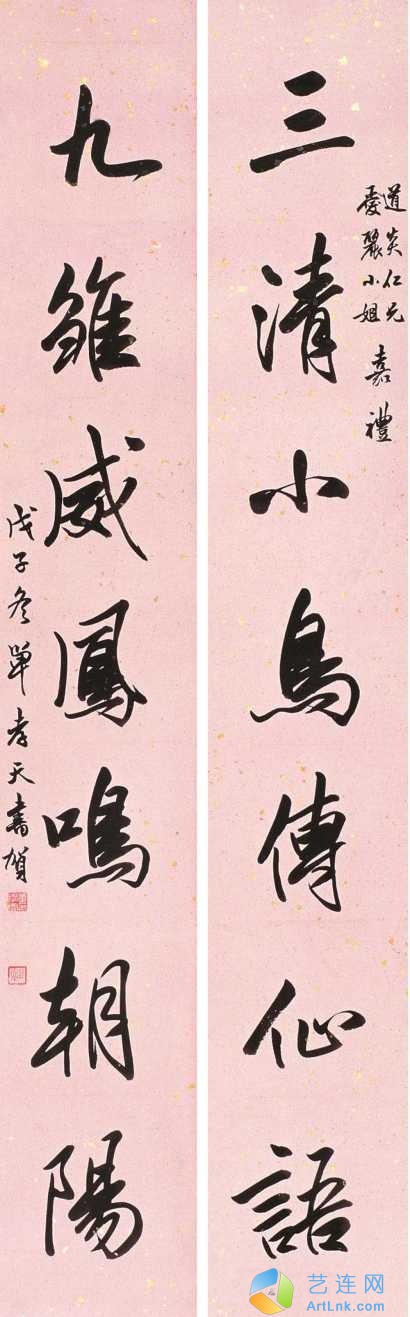 三清小鳥傳仙語
道炎仁兄
爱麗小姐 嘉禮
九雛威鳳鳴朝陽
戊子冬單孝天書賀
艺连网
ArtLnk.com